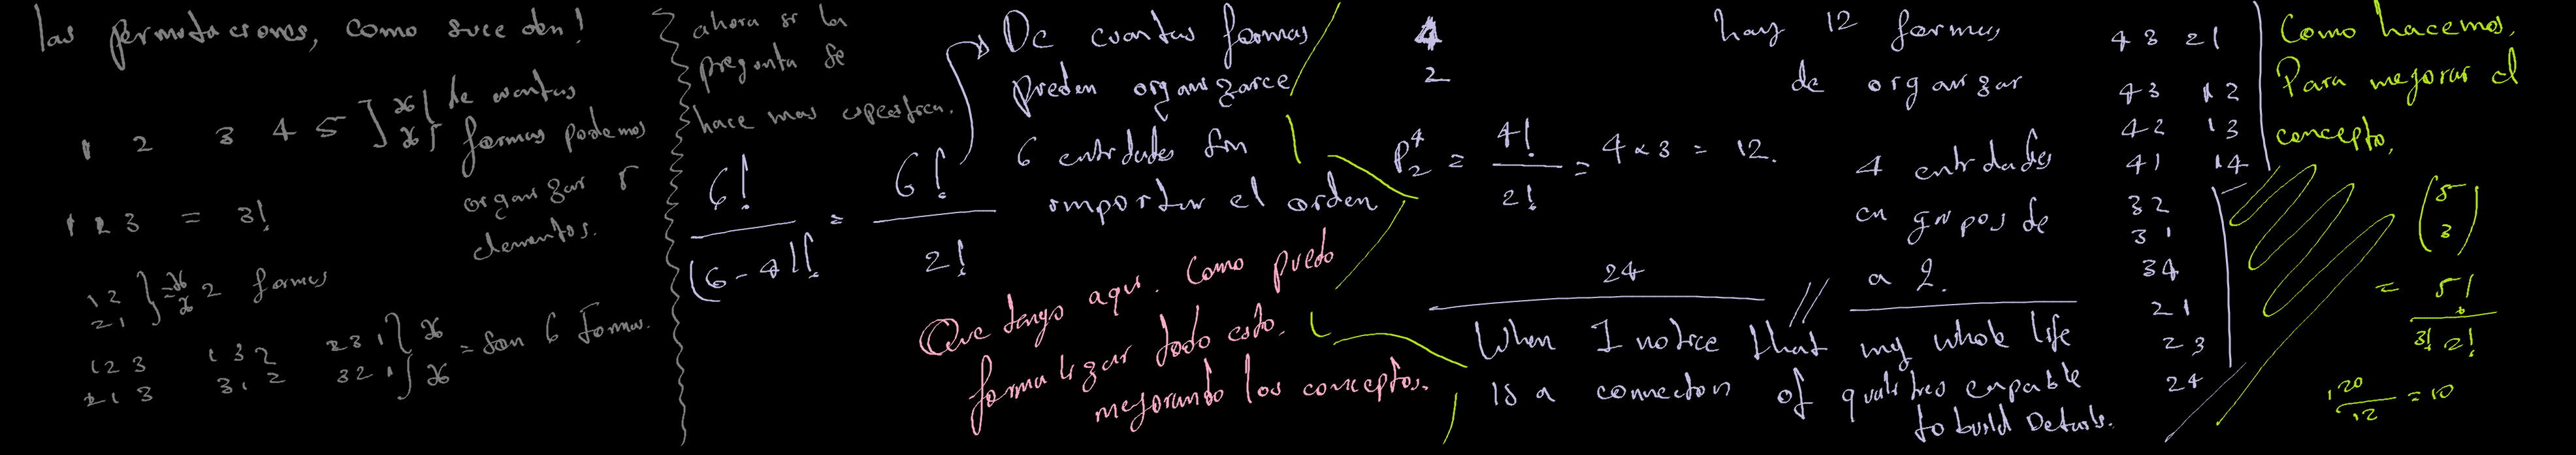 las permutaciones, como suceden!
1 2 3 4 5
de cuantas
formas podemos
organizar 5
elementos.
1 2 3 = 3!
12
21
= 2 formas
123 132 231
213 312 321
= Son 6 formas.
ahora si la
pregunta se
hace mas especifica.
6!
(6-4)!
=
6!
2!
De cuantas formas
pueden organizarce
6 entidades sin
importar el orden
Que tengo aqui. Como puedo
formalizar todo esto.
mejorando los conceptos.
4
2
P⁴₂ = 4!/2! = 4 × 3 = 12.
hay 12 formas
de organizar
4 entidades
en grupos de
a 2.
24
When I notice that my whole life
Is a connection of qualities capable
to build Details.
43 21
43 12
42 13
41 14
32
31
34
21
23
24
Como hacemos,
Para mejorar el
concepto,
(5 3)
= 5!
3! 2!
120/12 = 10